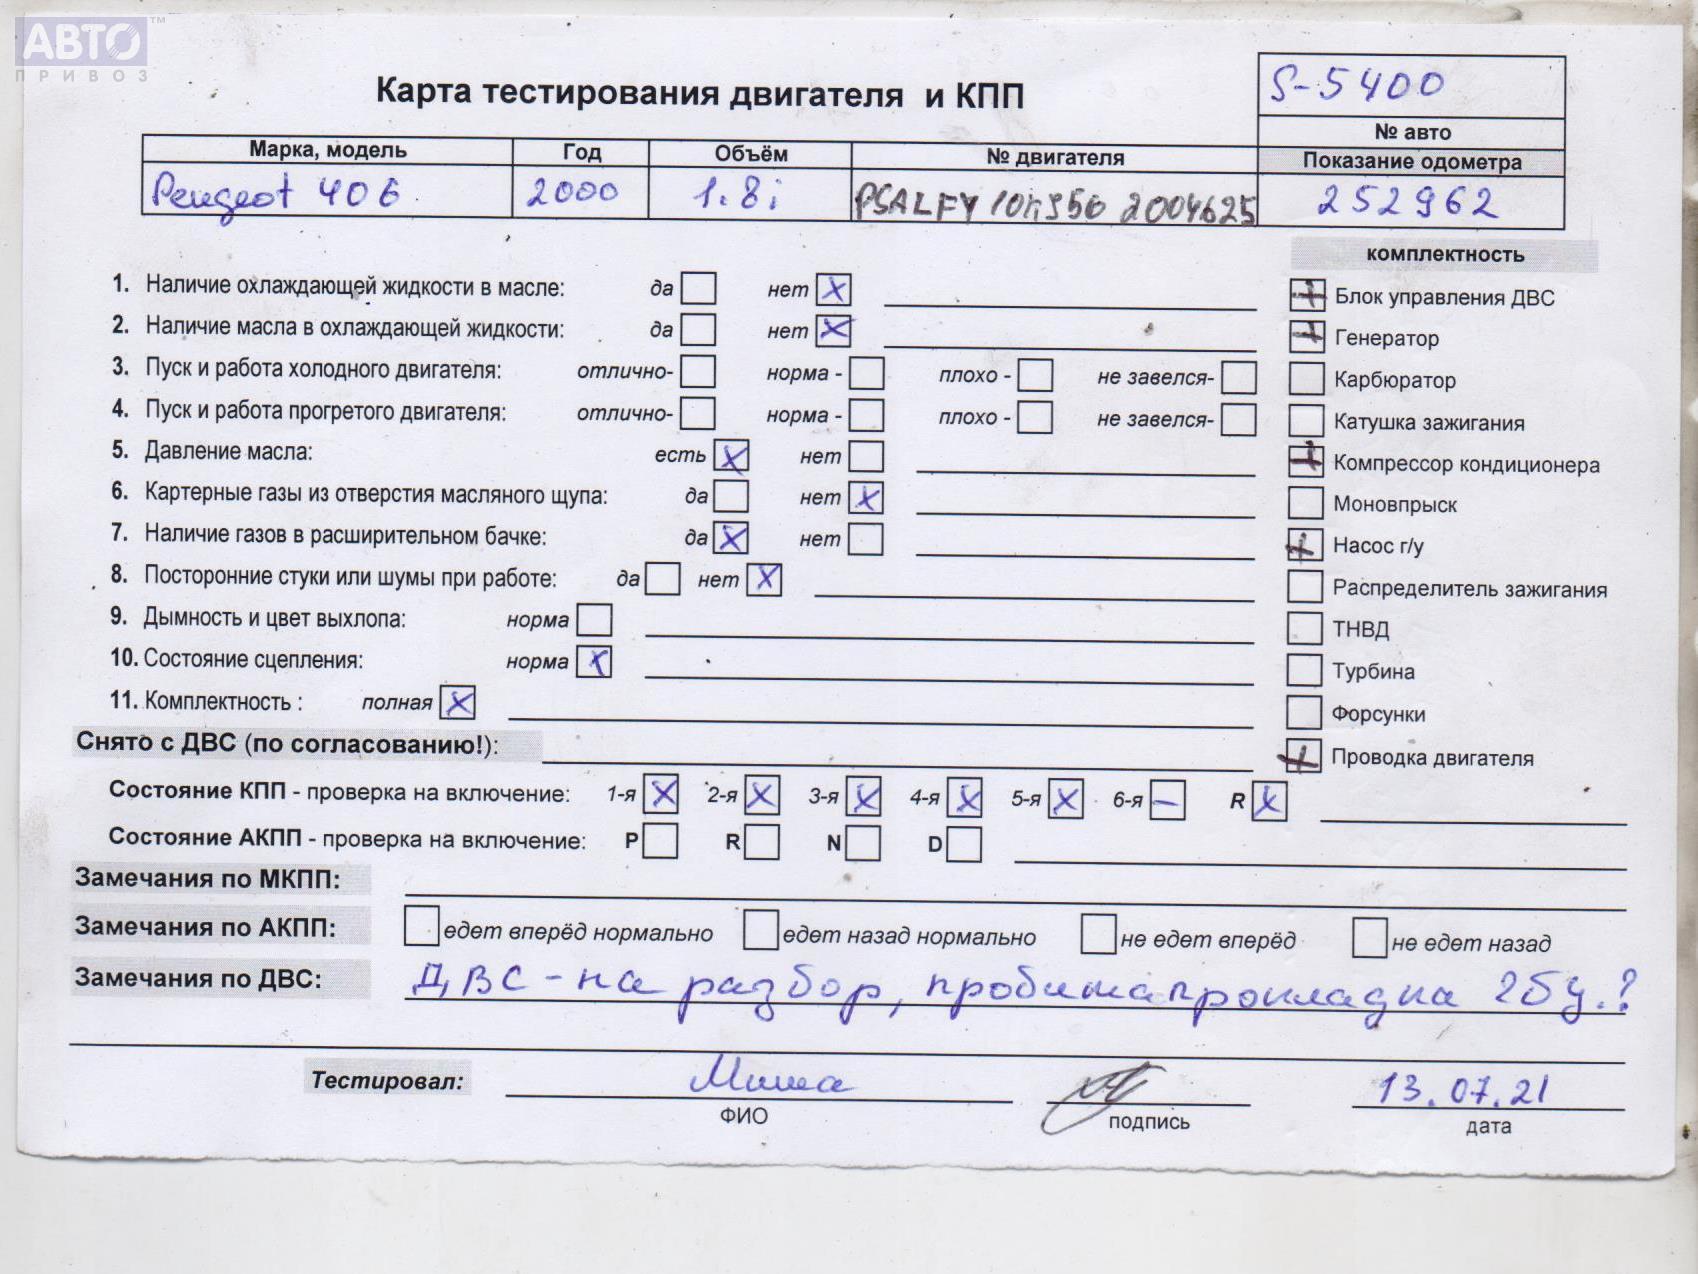 АВТО™
ПРИВОЗ
Карта тестирования двигателя и КПП
S-5400
№ авто
Марка, модель Год Объём № двигателя Показание одометра
Peugeot 406 2000 1.8i PSALFY 2004625 252962
комплектность
1. Наличие охлаждающей жидкости в масле: да нет X
Блок управления ДВС
2. Наличие масла в охлаждающей жидкости: да нет X
Генератор
3. Пуск и работа холодного двигателя: отлично- норма - плохо - не завелся-
Карбюратор
4. Пуск и работа прогретого двигателя: отлично- норма - плохо - не завелся-
Катушка зажигания
5. Давление масла: есть X нет
Компрессор кондиционера
6. Картерные газы из отверстия масляного щупа: да нет X
Моновпрыск
7. Наличие газов в расширительном бачке: да X нет
Насос г/у
8. Посторонние стуки или шумы при работе: да нет X
Распределитель зажигания
9. Дымность и цвет выхлопа: норма
ТНВД
10. Состояние сцепления: норма X
Турбина
11. Комплектность : полная X
Форсунки
Снято с ДВС (по согласованию!):
Проводка двигателя
Состояние КПП - проверка на включение: 1-я X 2-я X 3-я X 4-я X 5-я X 6-я – R X
Состояние АКПП - проверка на включение: P R N D
Замечания по МКПП:
Замечания по АКПП: едет вперёд нормально едет назад нормально не едет вперёд не едет назад
Замечания по ДВС: ДВС - на разбор, пробита прокладка ГБЦ.?
Тестировал: Миша 13.07.21
ФИО подпись дата